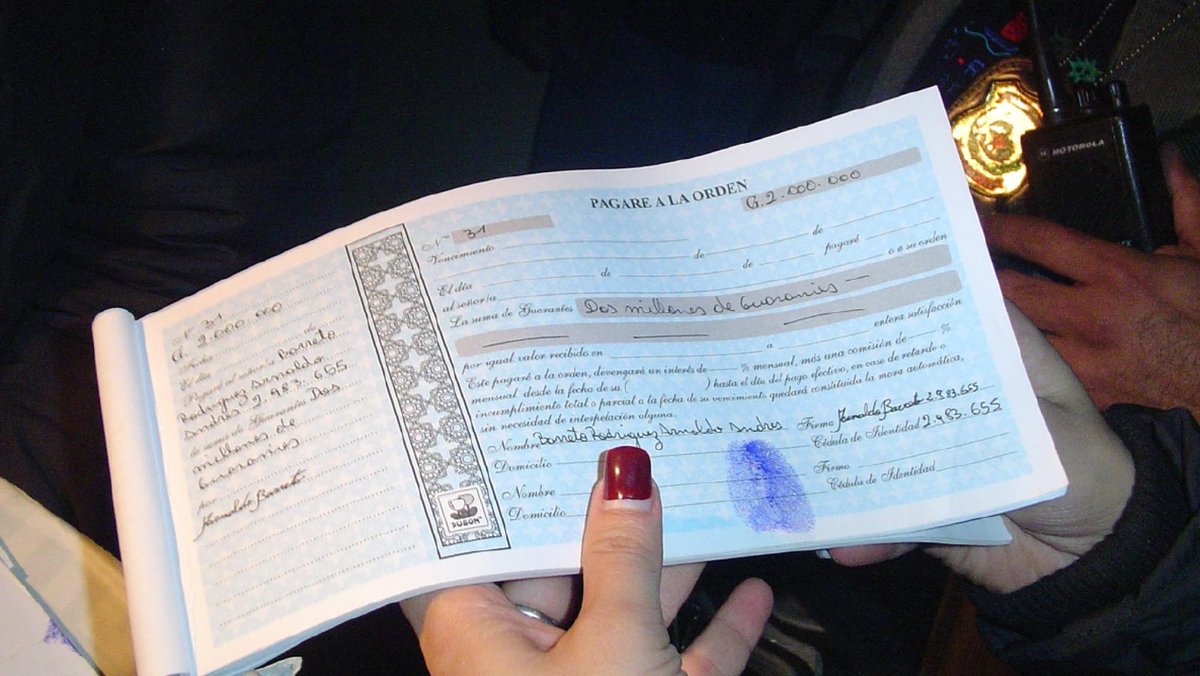 Nº 31
G. 2.000.000
Fecha de
El día
Pagaré al señor/a Barreto
Rodriguez Arnaldo
Andres 2.983.665
la suma de Guaraníes Dos
millones de
guaranies
por
Arnaldo Barreto
DUGON
PAGARE A LA ORDEN
Nº 31
G. 2.000.000
Vencimiento de de
El día de de pagaré
al señor/a o a su orden
La suma de Guaraníes Dos millones de Guaranies
por igual valor recibido en a entera satisfacción
Este pagaré a la orden, devengará un interés de % mensual, más una comisión de %
mensual desde la fecha de su ( ) hasta el día del pago efectivo, en caso de retardo o
incumplimiento total o parcial a la fecha de su vencimiento quedará constituida la mora automática,
sin necesidad de interpelación alguna.
Nombre Barreto Rodriguez Arnoldo Andres Firma Arnaldo Barreto 2.983.665
Domicilio Cédula de Identidad 2.983.655
Nombre Firma
Domicilio Cédula de Identidad
MOTOROLA